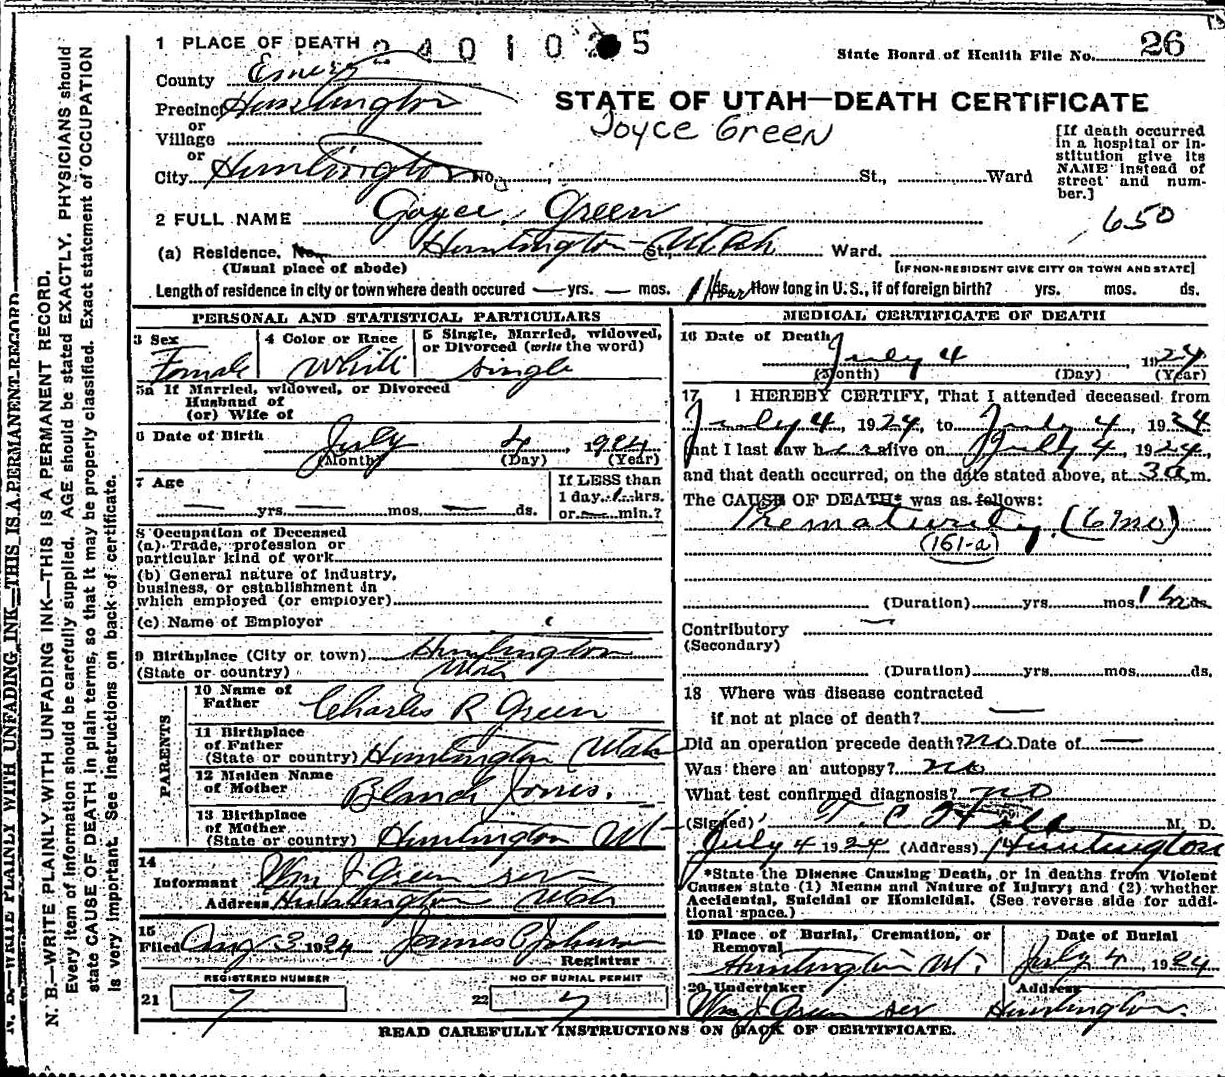 1 PLACE OF DEATH 2401025
State Board of Health File No. 26
County Emery
Precinct Huntington
or
Village
or
City Huntington No. St., Ward
STATE OF UTAH—DEATH CERTIFICATE
Joyce Green
[If death occurred in a hospital or institution give its NAME instead of street and number.]
650
2 FULL NAME Joyce Green
(a) Residence. No. Huntington St., Utah Ward.
(Usual place of abode) [IF NON-RESIDENT GIVE CITY OR TOWN AND STATE]
Length of residence in city or town where death occured — yrs. — mos. 1 Hour ds. How long in U.S., if of foreign birth? yrs. mos. ds.
PERSONAL AND STATISTICAL PARTICULARS
3 Sex Female
4 Color or Race White
5 Single, Married, widowed, or Divorced (write the word) single
5a If Married, widowed, or Divorced
Husband of
(or) Wife of
6 Date of Birth July 4 1924
(Month) (Day) (Year)
7 Age — yrs. — mos. — ds.
If LESS than
1 day 1 hrs.
or — min.?
8 Occupation of Deceased
(a) Trade, profession or
particular kind of work
(b) General nature of industry,
business, or establishment in
which employed (or employer)
(c) Name of Employer
9 Birthplace (City or town) Huntington
(State or country) Utah
PARENTS
10 Name of Father Charles R Green
11 Birthplace of Father
(State or country) Huntington Utah
12 Maiden Name of Mother Blanch Jones.
13 Birthplace of Mother
(State or country) Huntington Ut
14
Informant Wm J Green ser
Address Huntington Utah
15
Filed Aug 3 1924 James P Johnson
Registrar
REGISTERED NUMBER NO OF BURIAL PERMIT
21 7 22 7
MEDICAL CERTIFICATE OF DEATH
16 Date of Death July 4 1924
(Month) (Day) (Year)
17 I HEREBY CERTIFY, That I attended deceased from
July 4, 1924, to July 4, 1924
that I last saw her alive on July 4, 1924,
and that death occurred, on the date stated above, at 3 a m.
The CAUSE OF DEATH* was as follows:
Prematurity (6 mo)
(161-a)
(Duration) yrs. mos. 1 h ds.
Contributory —
(Secondary)
(Duration) yrs. mos. ds.
18 Where was disease contracted
if not at place of death? —
Did an operation precede death? no Date of —
Was there an autopsy? no
What test confirmed diagnosis? no
(Signed) T. C. Hill M. D.
July 4 1924 (Address) Huntington
*State the Disease Causing Death, or in deaths from Violent
Causes state (1) Means and Nature of Injury; and (2) whether
Accidental, Suicidal or Homicidal. (See reverse side for additional space.)
19 Place of Burial, Cremation, or Removal Huntington Ut.
Date of Burial July 4, 1924
20 Undertaker Wm J Green ser
Address Huntington.
READ CAREFULLY INSTRUCTIONS ON BACK OF CERTIFICATE.
N. B.—WRITE PLAINLY WITH UNFADING INK—THIS IS A PERMANENT RECORD.
N. B.—WRITE PLAINLY WITH UNFADING INK—THIS IS A PERMANENT RECORD.
Every item of information should be carefully supplied. AGE should be stated EXACTLY. PHYSICIANS should
state CAUSE OF DEATH in plain terms, so that it may be properly classified. Exact statement of OCCUPATION
is very important. See instructions on back of certificate.